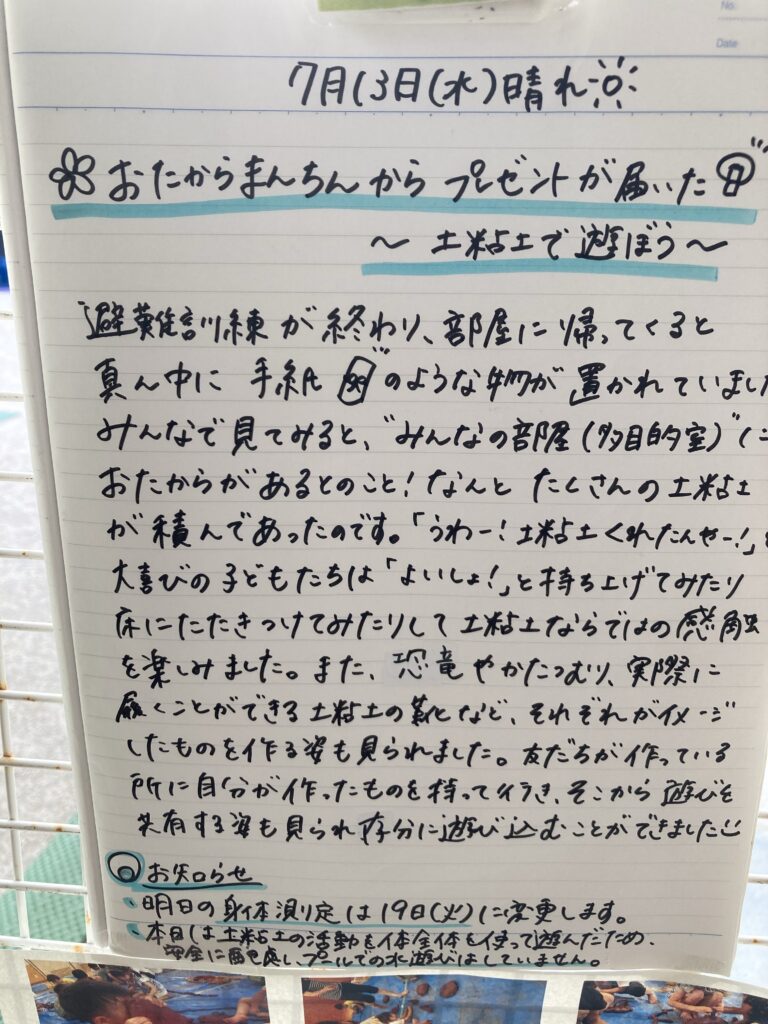 No.
Date
7月13日(水)晴れ
おたからまんちんから プレゼントが届いた
～ 土粘土で遊ぼう～
避難訓練が終わり、部屋に帰ってくると
真ん中に 手紙 のような物が置かれていました
みんなで見てみると、"みんなの部屋(多目的室)"に
おたからがあるとのこと!なんと たくさんの土粘土
が積んであったのです。「うわー!土粘土くれたんやー!」と
大喜びの子どもたちは「よいしょ!」と持ち上げてみたり
床にたたきつけてみたりして土粘土ならではの感触
を楽しみました。また、恐竜やかたつむり、実際に
履くことができる土粘土の靴など、それぞれがイメージ
したものを作る姿も見られました。友だちが作っている
所に自分が作ったものを持って行き、そこから遊びを
共有する姿も見られ存分に遊び込むことができました
お知らせ
・明日の身体測定は19日(火)に変更します。
・本日は土粘土の活動を体全体を使って遊んだため、
安全に配慮し、プールでの水遊びはしていません。